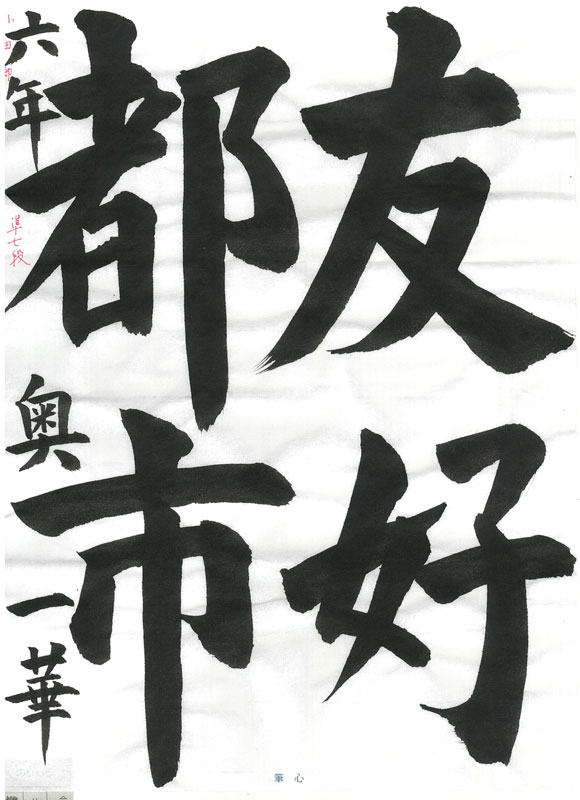 友好
都市
六年 奥一華
準七段
筆心